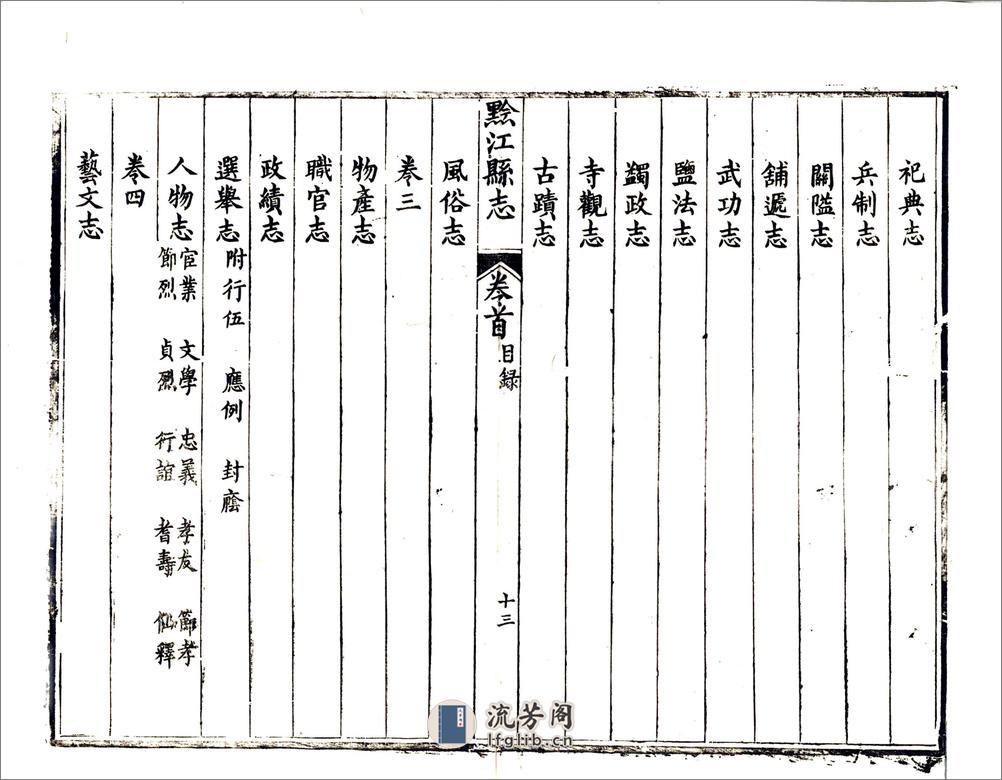 祀典志
兵制志
關隘志
舖遞志
武功志
鹽法志
蠲政志
寺觀志
古蹟志
黔江縣志 卷首 目録 十三
風俗志
卷三
物產志
職官志
政績志
選舉志 附行伍 應例 封廕
人物志 宦業 文學 忠義 孝友 節孝
節烈 貞烈 行誼 耆壽 仙釋
卷四
藝文志
流芳阁
lfglib.cn